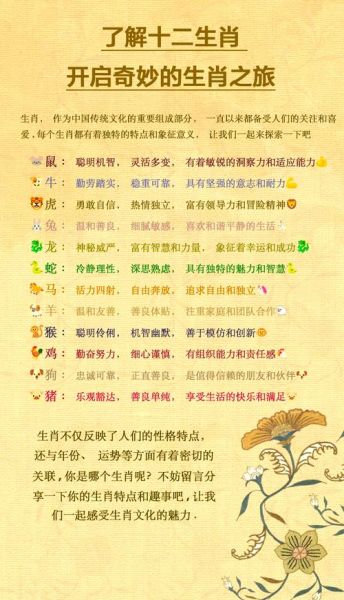 了解十二生肖
开启奇妙的生肖之旅
生肖, 作为中国传统文化的重要组成部分, 一直以来都备受人们的关注和喜
爱,每个生肖都有着独特的特点和象征意义, 让我们一起来探索一下吧
🐭鼠: 聪明机智, 灵活多变, 有着敏锐的洞察力和适应能力👍
🐮牛: 勤劳踏实, 稳重可靠, 具有坚强的意志和耐力💪
🐯虎: 勇敢自信, 热情独立, 富有领导力和冒险精神🦁
🐰兔: 温和善良, 细腻敏感, 喜欢和谐平静的生活🐇
🐉龙: 神秘威严, 富有智慧和力量, 象征着幸运和成功🐉
🐍蛇: 冷静理性, 深思熟虑, 具有独特的魅力和智慧🐍
🐎马: 活力四射, 自由奔放, 追求自由和独立🦄
🐏羊: 温和友善, 善良体贴, 注重家庭和团队合作🐑
🐒猴: 聪明伶俐, 机智幽默, 善于模仿和创新🌞
🐓鸡: 勤奋努力, 细心谨慎, 有组织能力和责任感🐔
🐶狗: 忠诚可靠, 正直善良, 是值得信赖的朋友和伙伴🐕
🐷猪: 乐观豁达, 善良单纯, 享受生活的快乐和满足🐷
生肖不仅反映了人们的性格特点,
还与年份、运势等方面有着密切的
关联,你是哪个生肖呢? 不妨留言分
享一下你的生肖特点和趣事吧,让我
们一起感受生肖文化的魅力.